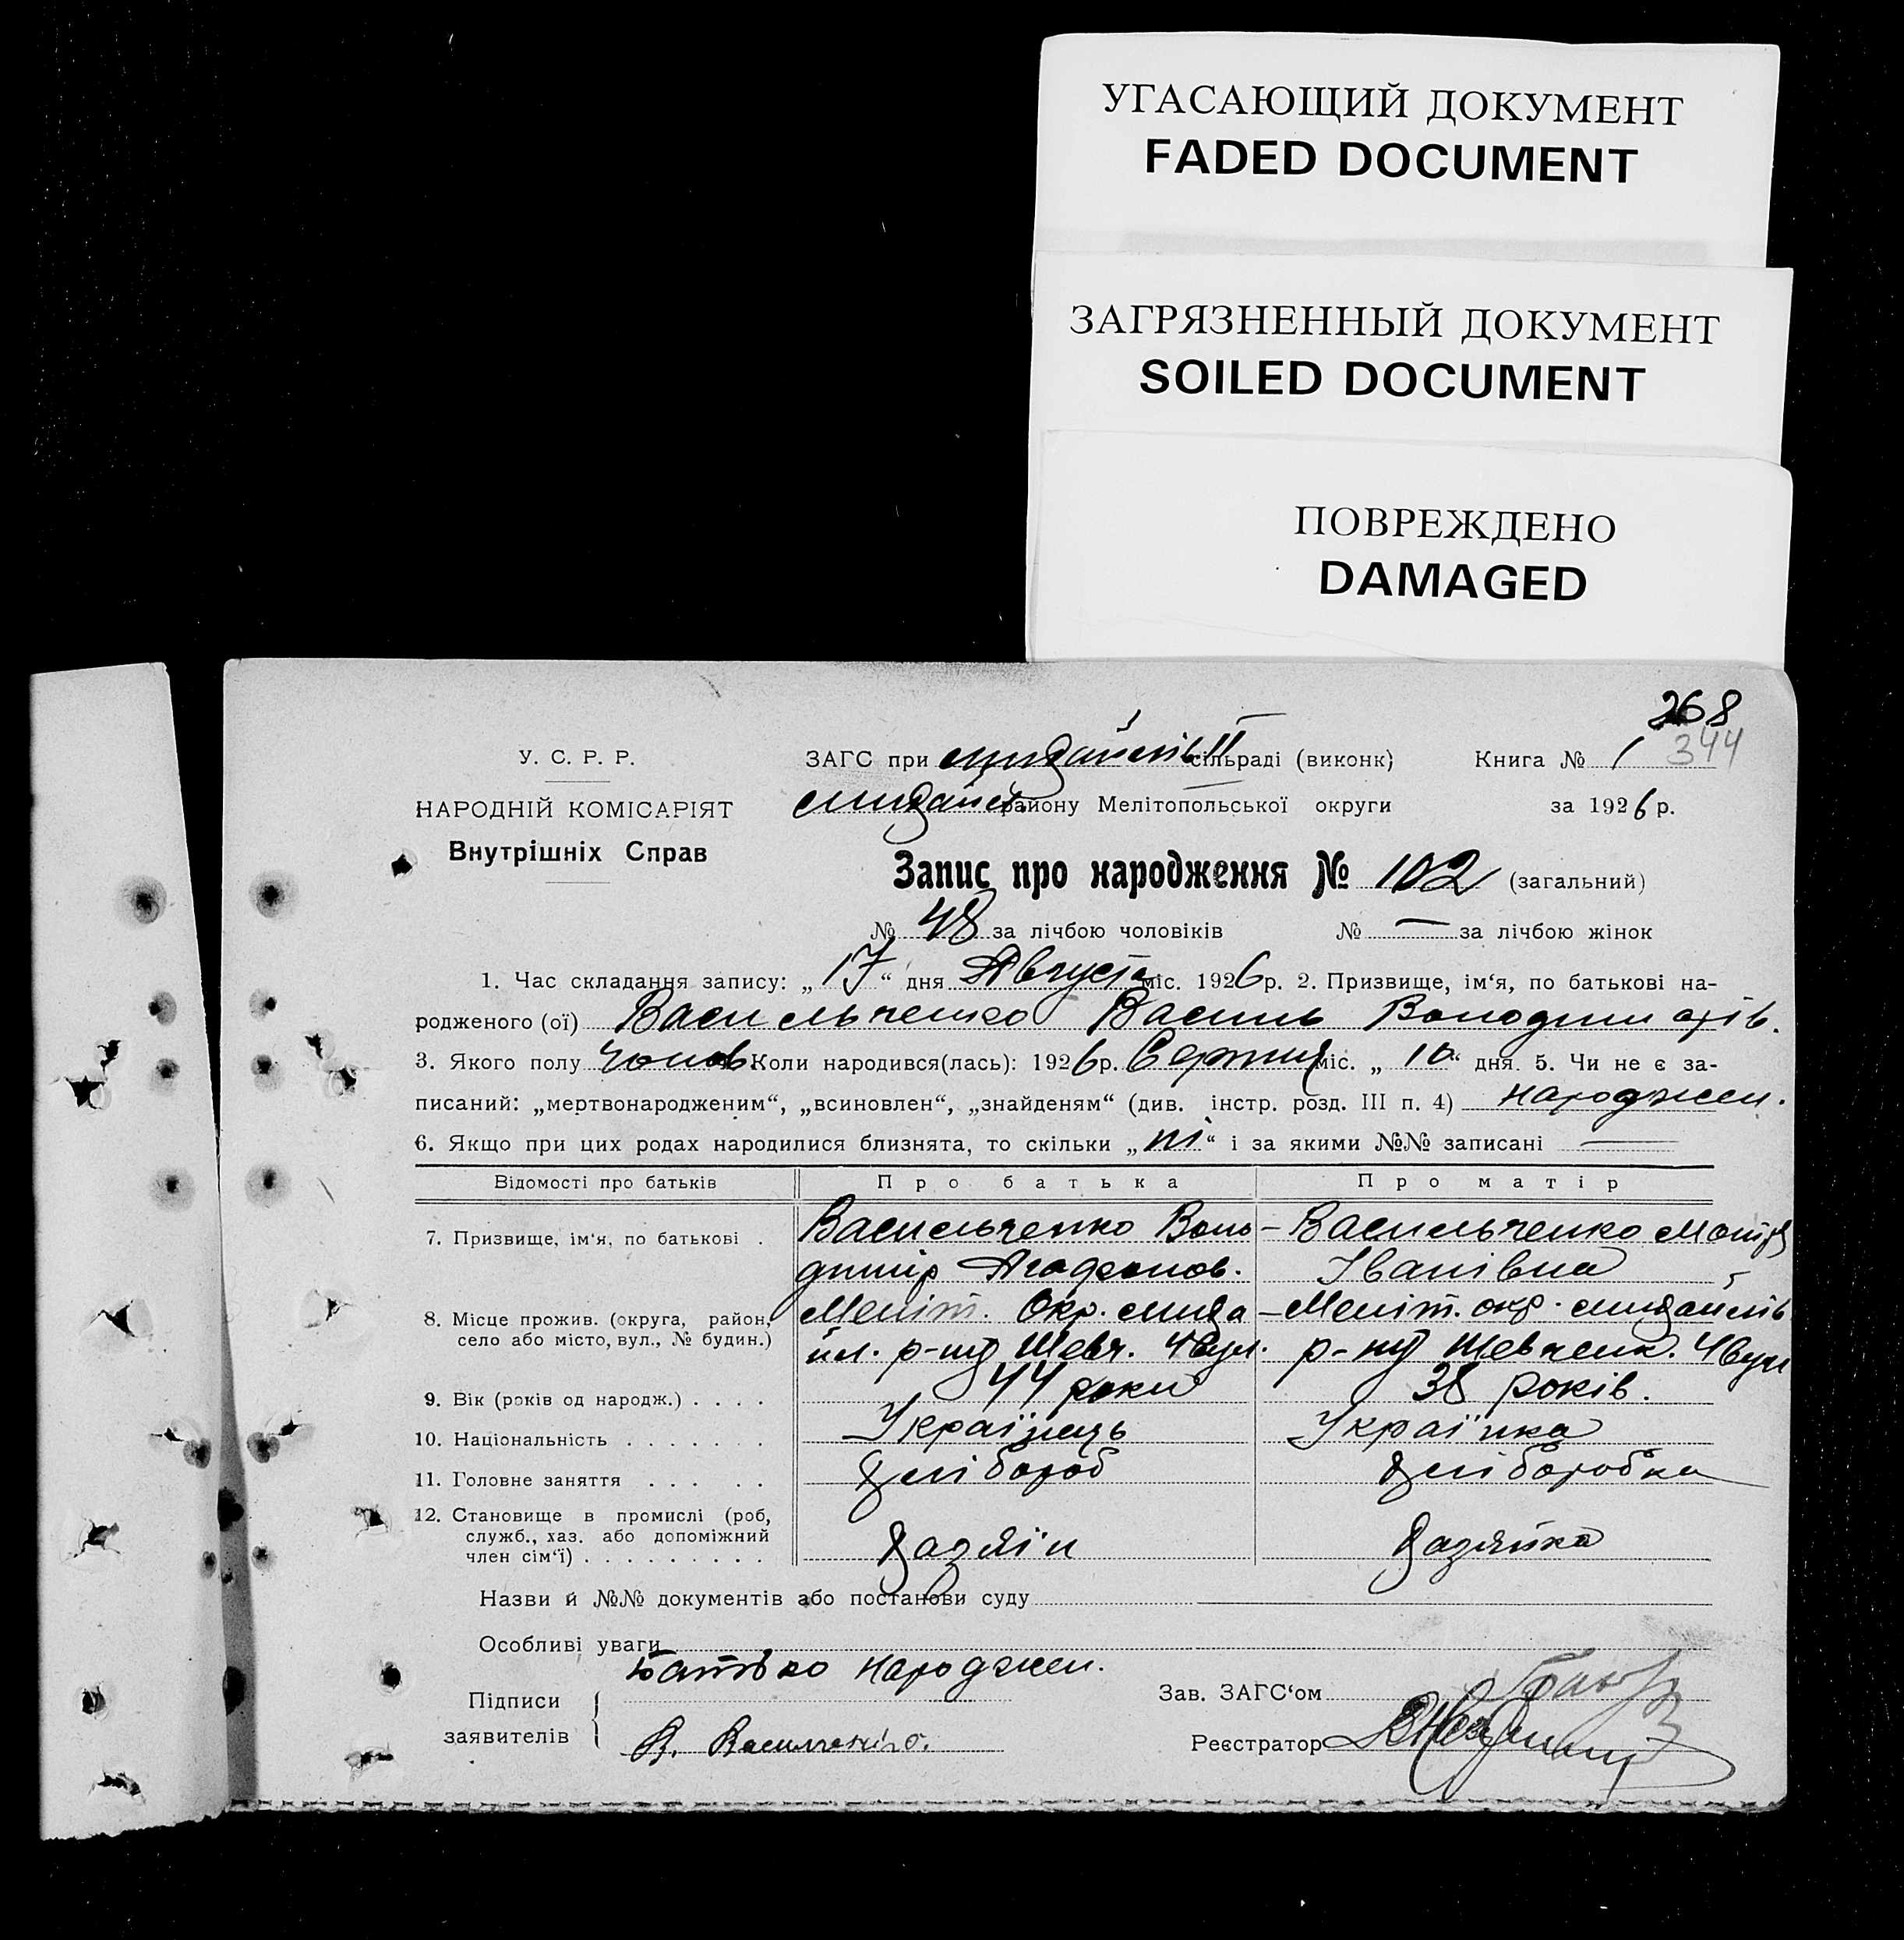 УГАСАЮЩИЙ ДОКУМЕНТ
FADED DOCUMENT
ЗАГРЯЗНЕННЫЙ ДОКУМЕНТ
SOILED DOCUMENT
ПОВРЕЖДЕНО
DAMAGED
268
344
У. С. Р. Р.
НАРОДНІЙ КОМІСАРІЯТ
Внутрішніх Справ
ЗАГС при сільраді (виконк)
Книга № 1
району Мелітопольської округи
за 1926 р.
Запис про народження № 102 (загальний)
№ 48 за лічбою чоловіків № — за лічбою жінок
1. Час складання запису: „17“ дня Августа міс. 1926 р. 2. Призвище, ім‘я, по батькові на-
родженого (ої) Васильченко Василь Володимирів.
3. Якого полу чолов. Коли народився(лась): 1926 р. Серпня міс. „10“ дня. 5. Чи не є за-
писаний: „мертвонародженим“, „всиновлен“, „знайденям“ (див. інстр. розд. III п. 4) народжен.
6. Якщо при цих родах народилися близнята, то скільки „ні“ і за якими №№ записані
Відомості про батьків
Про батька
Про матір
7. Призвище, ім‘я, по батькові . Васильченко Воло- Васильченко Мотря
димир Агафонов. Іванівна
8. Місце прожив. (округа, район, Меліт. Окр. Меліт. окр.
село або місто, вул., № будин.) р-ну Шевч. 4 вул. р-ну Шевченк. 4 вул
9. Вік (років од народж.) . . . . 44 роки 38 років.
10. Національність . . . . . . . Українець Українка
11. Головне заняття . . . . . хлібороб хліборобка
12. Становище в промислі (роб,
служб., хаз. або допоміжний
член сім‘ї) . . . . . . . . . хазяїн хазяйка
Назви й №№ документів або постанови суду
Особливі уваги
батько народжен.
Підписи
заявителів
В. Василченко.
Зав. ЗАГС‘ом
Реєстратор